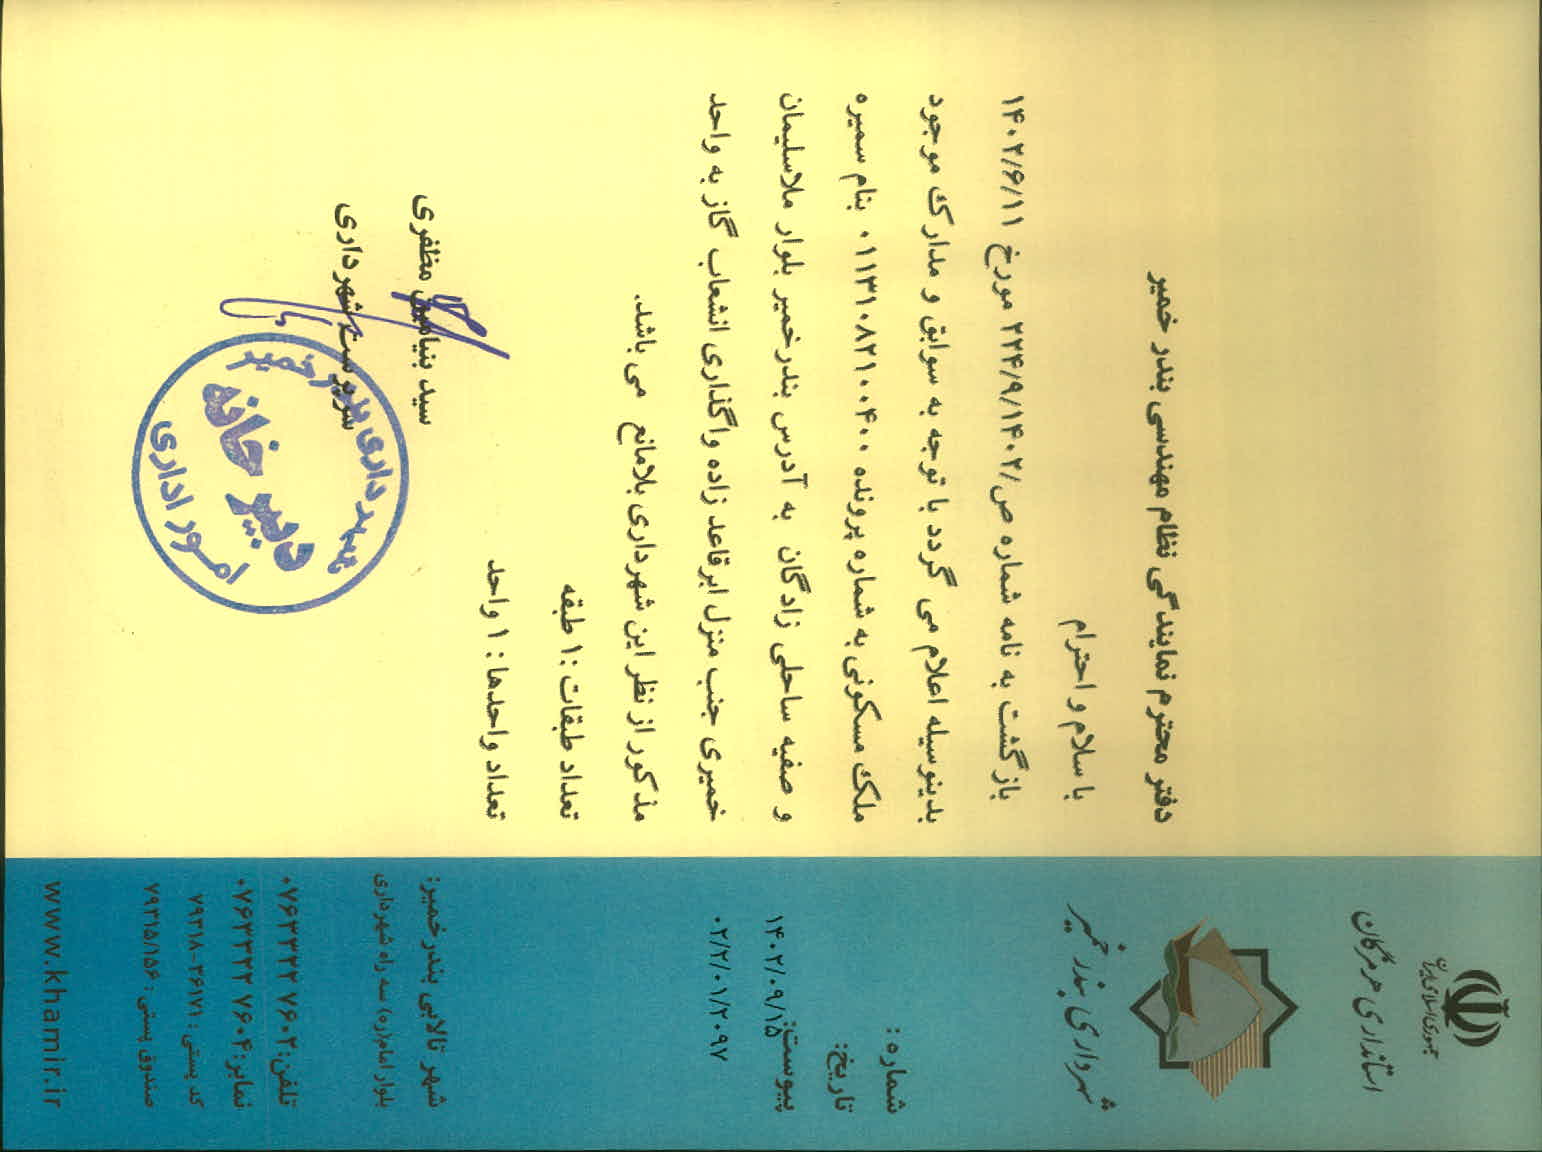 جمهوری اسلامی ایران
استانداری هرمزگان
شهرداری بندر خمیر
شماره:
تاریخ:
پیوست:
۱۴۰۲/۰۹/۱۵
۰۲/۲/۰۱/۲۰۹۷
شهر تالابی بندرخمیر:
بلوار امام(ره) سه راه شهرداری
تلفن: ۰۷۶۳۳۲۲۷۶۰۲
نمابر: ۰۷۶۳۳۲۲۷۶۰۴
کد پستی: ۷۹۳۱۸-۳۶۱۷۱
صندوق پستی: ۷۹۳۱۵/۱۵۶
www.khamir.ir
دفتر محترم نمایندگی نظام مهندسی بندر خمیر
با سلام و احترام
بازگشت به نامه شماره ص/۲۲۴/۹/۱۴۰۲ مورخ ۱۴۰۲/۶/۱۱
بدینوسیله اعلام می گردد با توجه به سوابق و مدارک موجود
ملک مسکونی به شماره پرونده ۰۱۱۳۱۰۸۲۱۰۰۴۰۰ بنام سمیره
و صفیه ساحلی زادگان به آدرس بندرخمیر بلوار ملاسلیمان
خمیری جنب منزل ابرقاعد زاده واگذاری انشعاب گاز به واحد
مذکور از نظر این شهرداری بلامانع می باشد.
تعداد طبقات : ۱ طبقه
تعداد واحدها : ۱ واحد
سید بنیامین مظفری
سرپرست شهرداری
شهرداری بندر خمیر
دبیرخانه
امور اداری